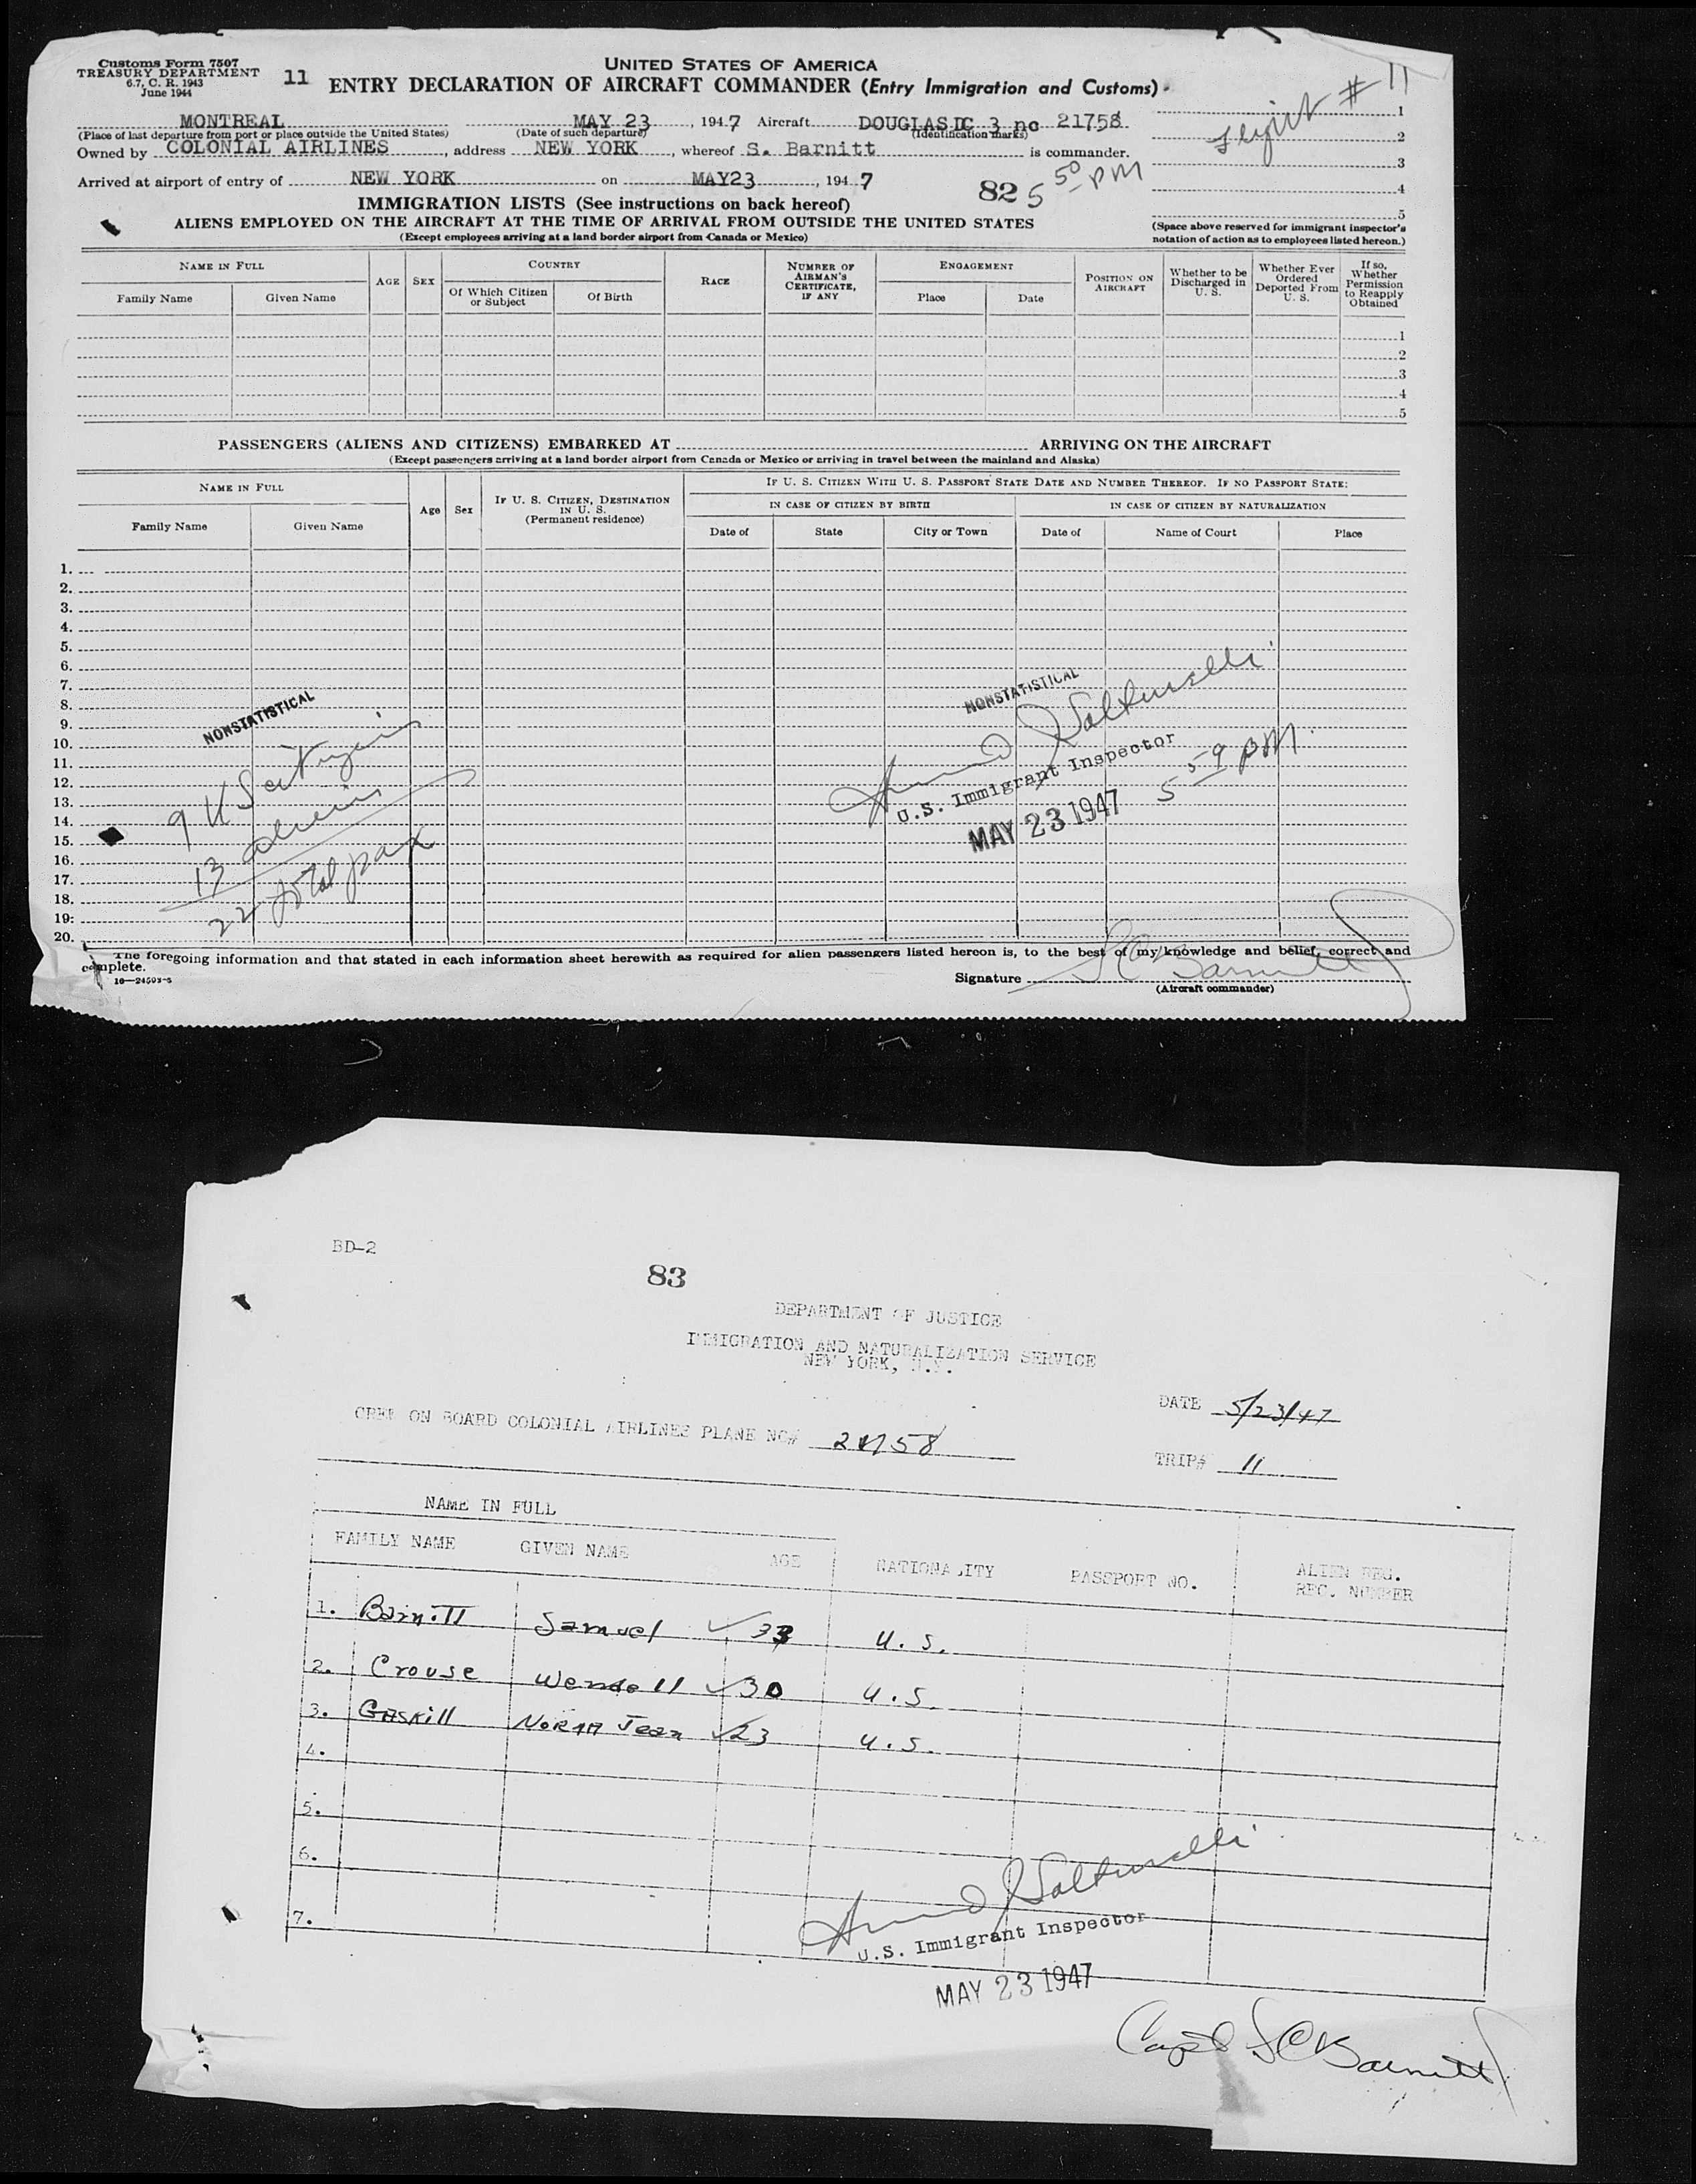 Customs Form 7507
TREASURY DEPARTMENT
6.7, C. R. 1943
June 1944
11
UNITED STATES OF AMERICA
ENTRY DECLARATION OF AIRCRAFT COMMANDER (Entry Immigration and Customs)
# 11
MONTREAL MAY 23, 1947 Aircraft DOUGLAS DC 3 nc 21758
(Place of last departure from port or place outside the United States) (Date of such departure) (Identification marks)
Owned by COLONIAL AIRLINES, address NEW YORK, whereof S. Barnitt is commander.
Arrived at airport of entry of NEW YORK on MAY23, 1947
82 5 50 PM
1
2
3
4
5
IMMIGRATION LISTS (See instructions on back hereof)
ALIENS EMPLOYED ON THE AIRCRAFT AT THE TIME OF ARRIVAL FROM OUTSIDE THE UNITED STATES
(Except employees arriving at a land border airport from Canada or Mexico)
(Space above reserved for immigrant inspector's
notation of action as to employees listed hereon.)
NAME IN FULL
Family Name Given Name
AGE SEX
COUNTRY
Of Which Citizen or Subject Of Birth
RACE
NUMBER OF AIRMAN'S CERTIFICATE, IF ANY
ENGAGEMENT
Place Date
POSITION ON AIRCRAFT
Whether to be Discharged in U. S.
Whether Ever Ordered Deported From U. S.
If so, Whether Permission to Reapply Obtained
1
2
3
4
5
PASSENGERS (ALIENS AND CITIZENS) EMBARKED AT ARRIVING ON THE AIRCRAFT
(Except passengers arriving at a land border airport from Canada or Mexico or arriving in travel between the mainland and Alaska)
NAME IN FULL
Family Name Given Name
Age Sex
IF U. S. CITIZEN, DESTINATION IN U. S.
(Permanent residence)
IF U. S. CITIZEN WITH U. S. PASSPORT STATE DATE AND NUMBER THEREOF. IF NO PASSPORT STATE:
IN CASE OF CITIZEN BY BIRTH IN CASE OF CITIZEN BY NATURALIZATION
Date of State City or Town Date of Name of Court Place
1.
2.
3.
4.
5.
6.
7.
8.
9.
10.
11.
12.
13.
14.
15.
16.
17.
18.
19:
20.
NONSTATISTICAL
9 US citizens
13 aliens
22 total pax
NONSTATISTICAL
U.S. Immigrant Inspector
MAY 23 1947 5 59 PM
The foregoing information and that stated in each information sheet herewith as required for alien passengers listed hereon is, to the best of my knowledge and belief, correct and
complete.
Signature S C Barnitt
(Aircraft commander)
BD-2
83
DEPARTMENT OF JUSTICE
IMMIGRATION AND NATURALIZATION SERVICE
NEW YORK, N.Y.
DATE 5/23/47
CREW ON BOARD COLONIAL AIRLINES PLANE NC# 21758
TRIP# 11
NAME IN FULL
FAMILY NAME GIVEN NAME AGE NATIONALITY PASSPORT NO. ALIEN REG. REC. NUMBER
1. Barnitt Samuel 33 U. S.
2. Crouse Wendell 30 U. S.
3. Gaskill Norma Jean 23 U. S.
4.
5.
6.
7.
U.S. Immigrant Inspector
MAY 23 1947
Capt S C Barnitt